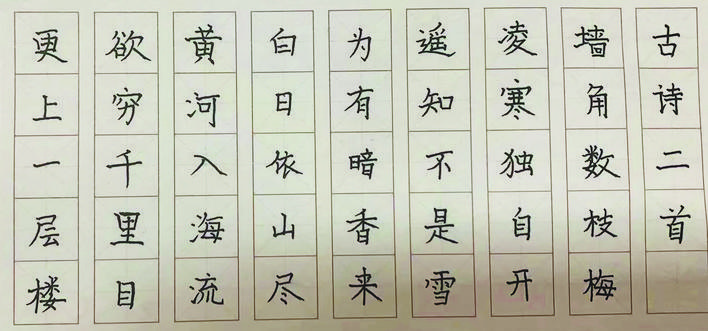 古诗二首
墙角数枝梅
凌寒独自开
遥知不是雪
为有暗香来
白日依山尽
黄河入海流
欲穷千里目
更上一层楼